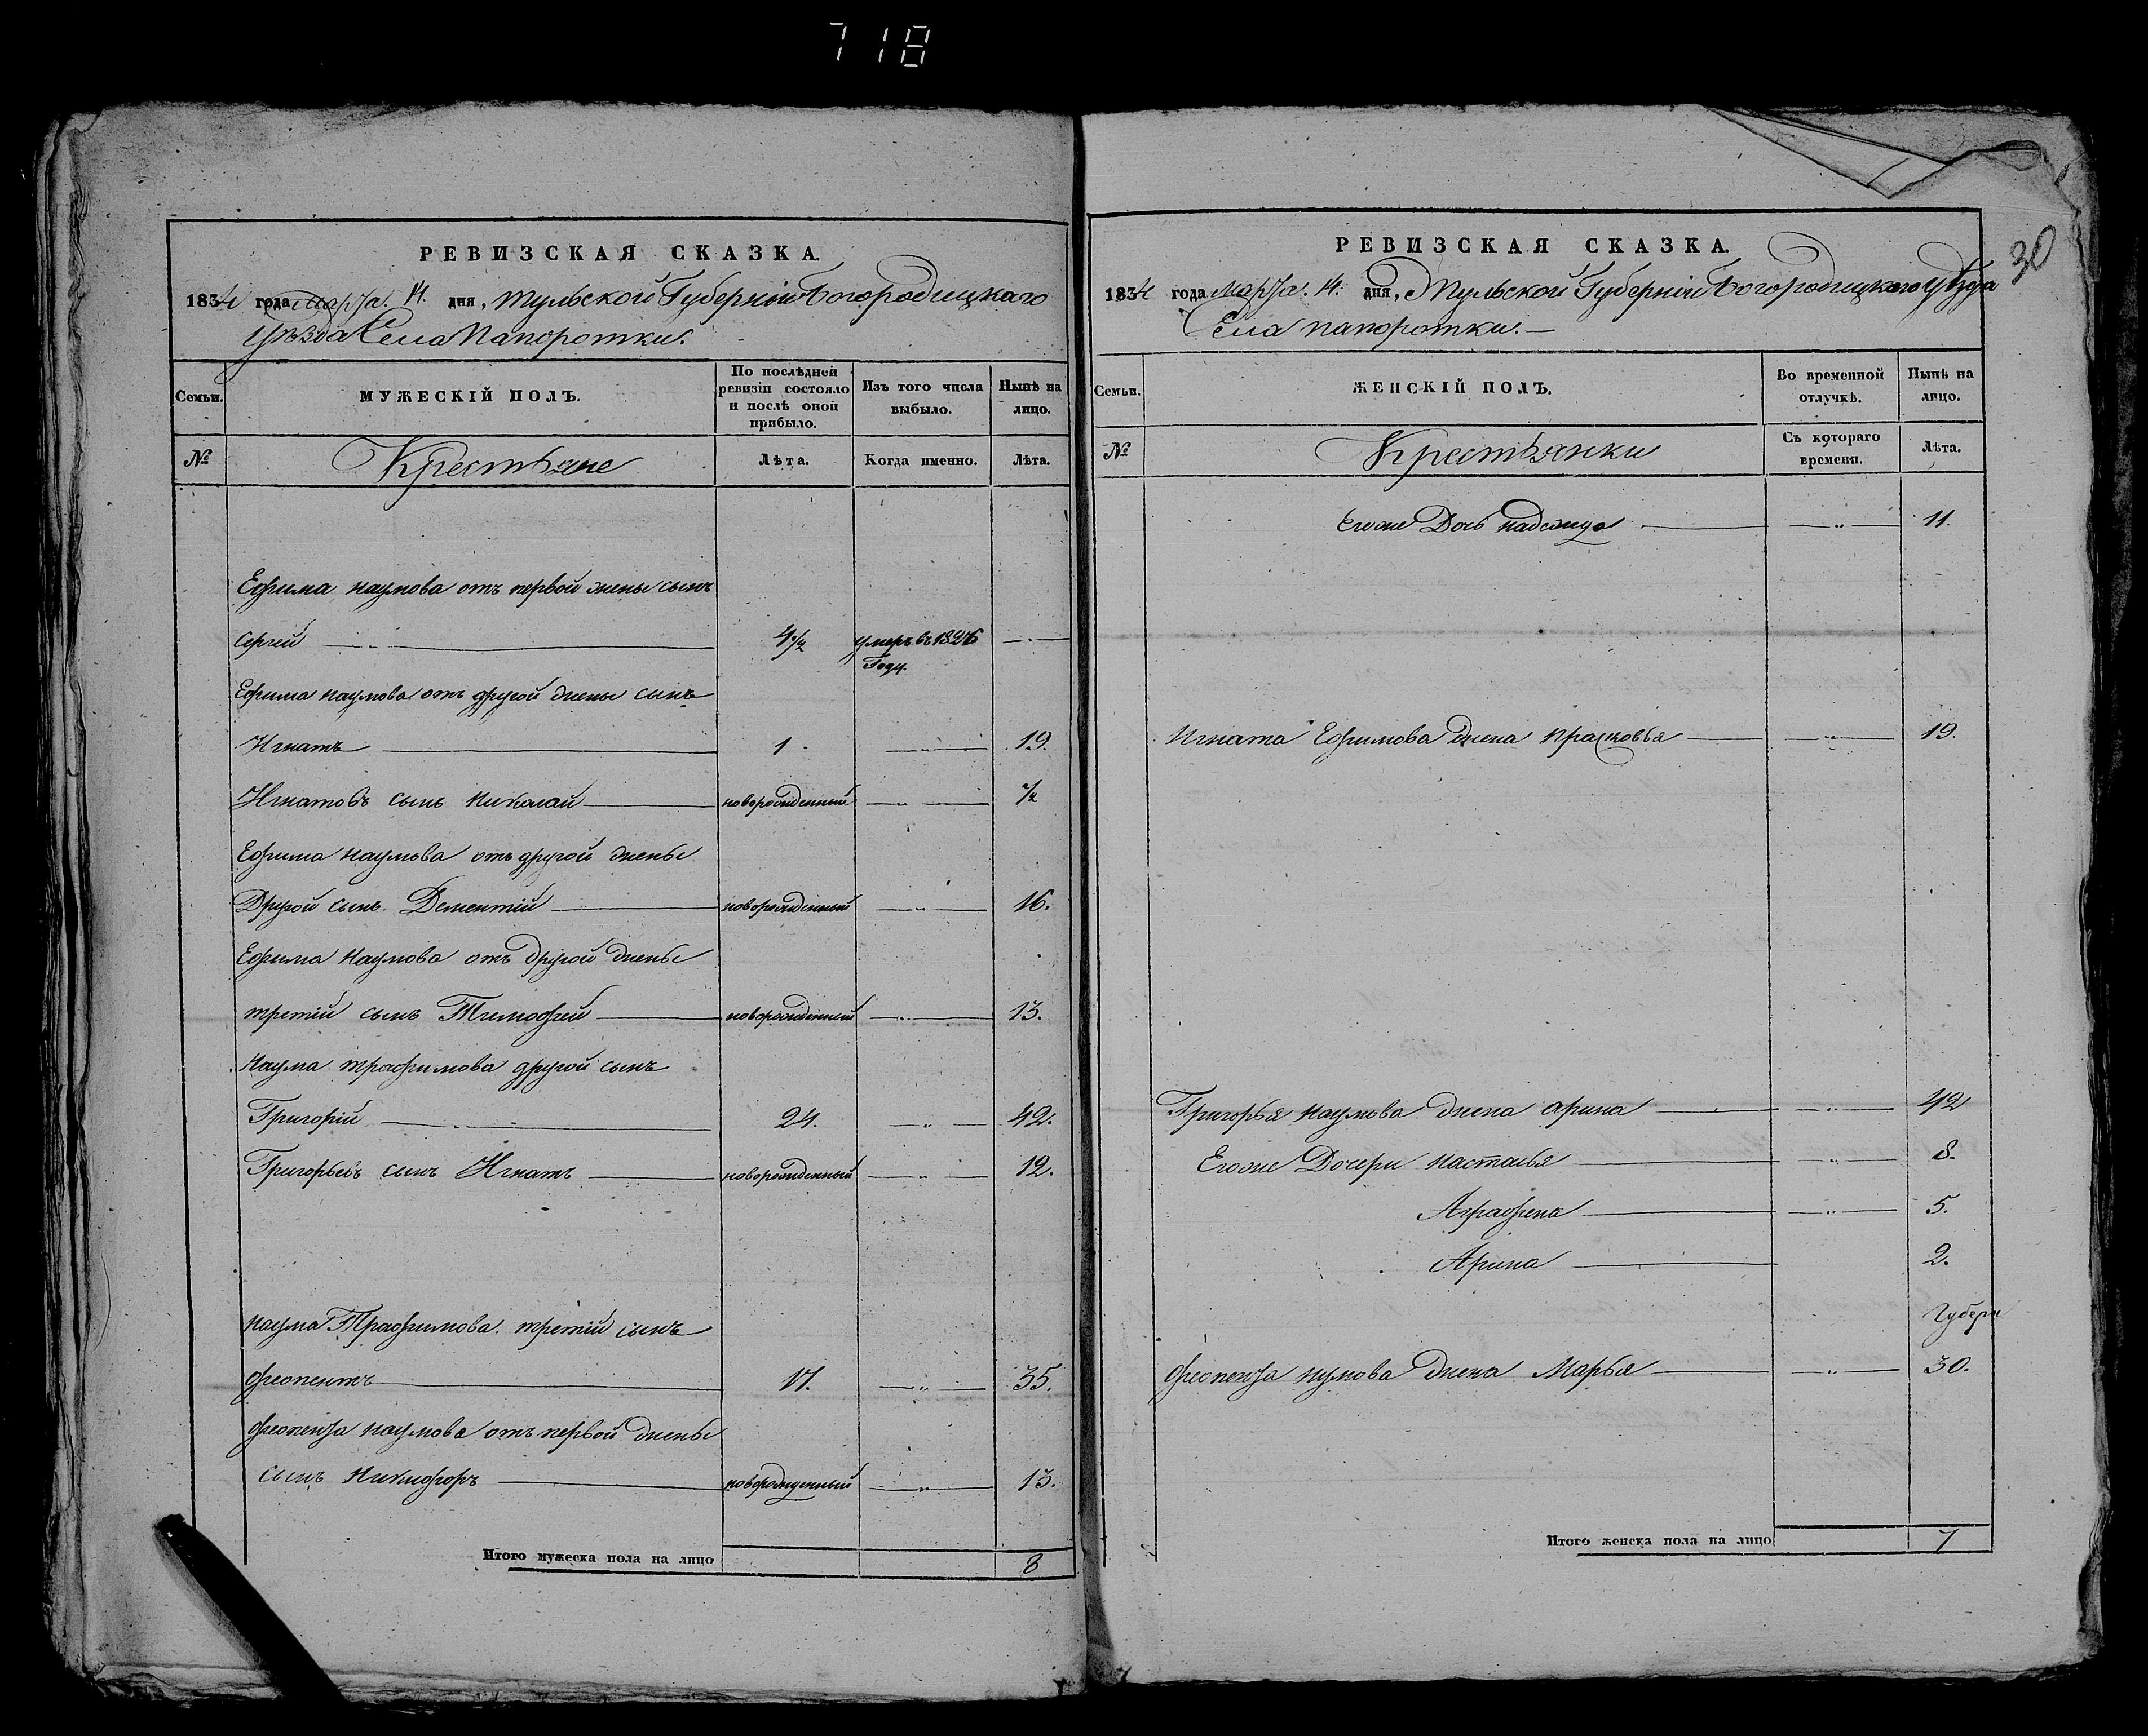 718
РЕВИЗСКАЯ СКАЗКА.
1834 года марта 14. дня, Тульской Губерніи Богородицкаго
уѣзда Села Папоротки.
Семьи.
МУЖЕСКІЙ ПОЛЪ.
По послѣдней ревизіи состояло и послѣ оной прибыло.
Изъ того числа выбыло.
Нынѣ на лицо.
№
Крестьяне
Лѣта.
Когда именно.
Лѣта.
Ефима наумова отъ первой жены сынъ
Сергей 4½ умеръ въ 1826
Году.
Ефима наумова отъ другой жены сынъ
Игнатъ 1. 19.
Игнатовъ сынъ Николай новорожденный ½
Ефима наумова отъ другой жены
Другой сынъ Дементій новорожденный 16.
Ефима наумова отъ другой жены
третій сынъ Тимофей новорожденный 13.
Наума трафимова другой сынъ
Григорій 24. 42.
Григорьевъ сынъ Игнатъ новорожденный 12.
наума Трафимова третій сынъ
феопентъ 17. 35.
феопента наумова отъ первой жены
сынъ Никифоръ новорожденный 13.
Итого мужеска пола на лицо 8
30
РЕВИЗСКАЯ СКАЗКА.
1834 года марта. 14. дня, Тульской Губерніи Богородицкаго уѣзда
Села папоротки.
Семьи.
ЖЕНСКІЙ ПОЛЪ.
Во временной отлучкѣ.
Нынѣ на лицо.
№
Крестьянки
Съ котораго времени.
Лѣта.
Егоже Дочь 11.
Игната Ефимова жена прасковья 19.
Григорья наумова жена арина 42
Егоже Дочери настасья 8.
Аграфена 5.
Арина 2.
Губерн
феопента нумова жена Марья 30.
Итого женска пола на лицо 7